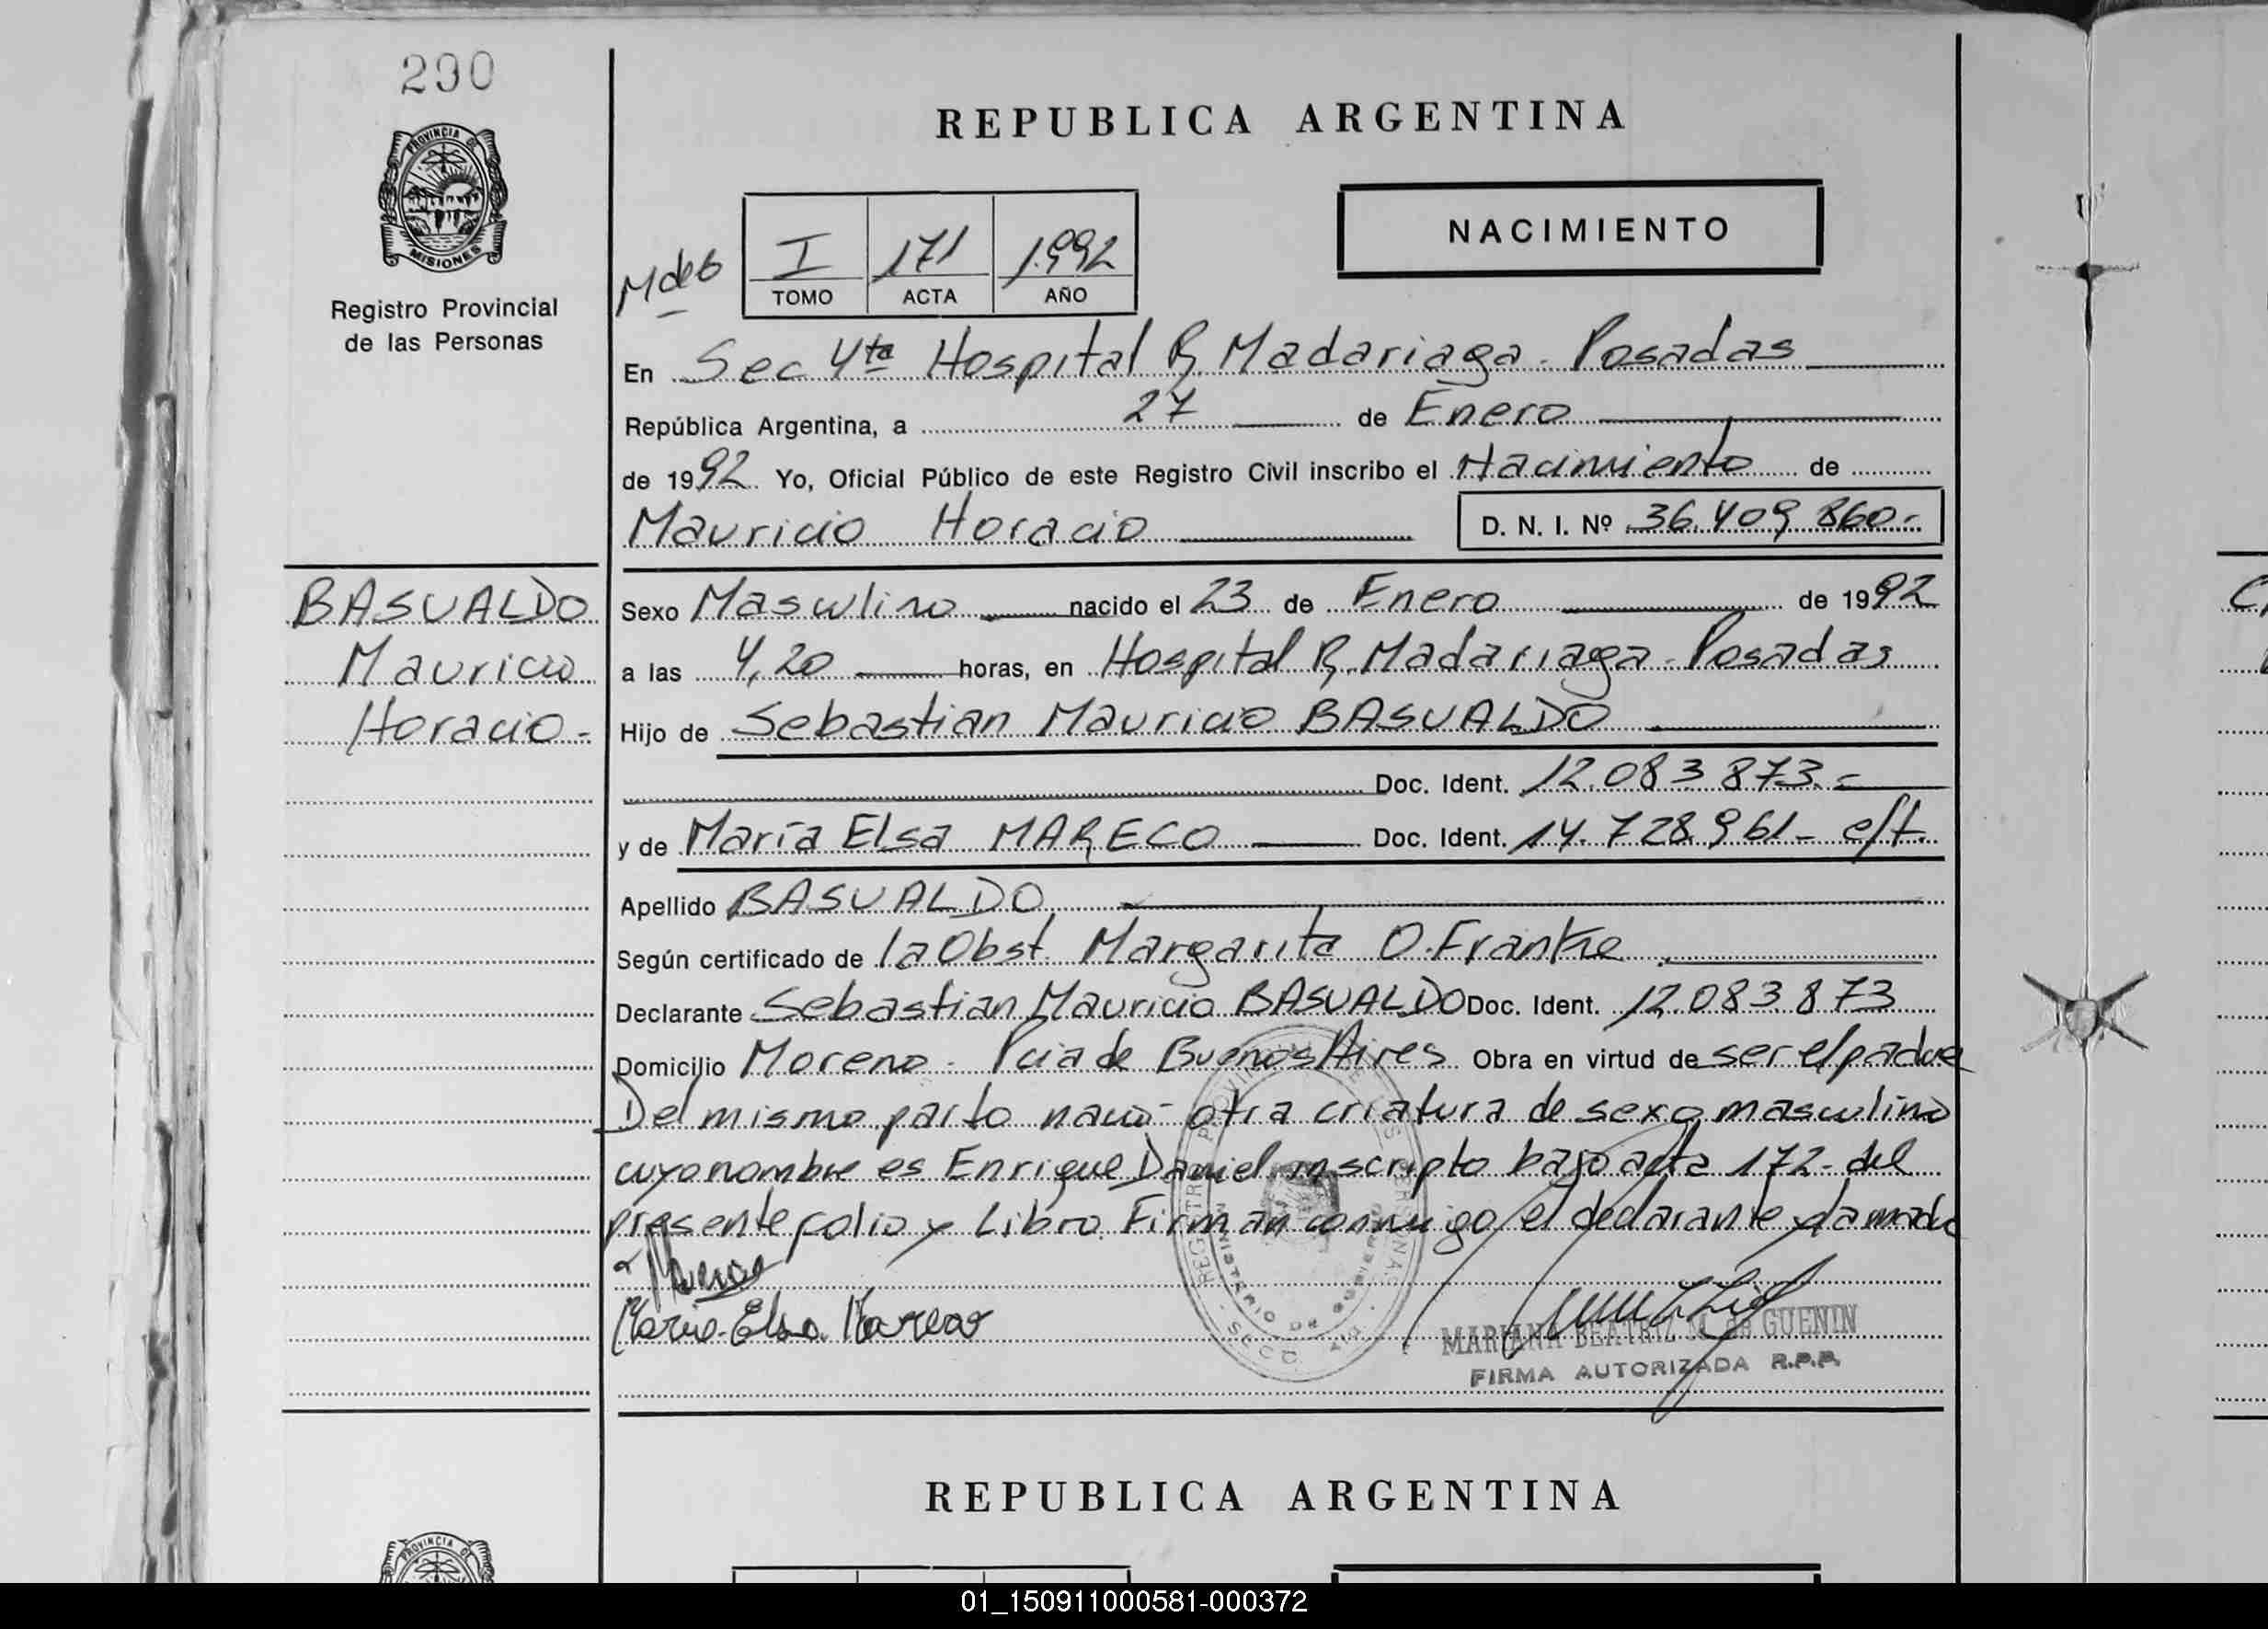 290
PROVINCIA DE
MISIONES
Registro Provincial
de las Personas
BASUALDO
Mauricio
Horacio -
REPUBLICA ARGENTINA
NACIMIENTO
M de 6
I 171 1.992
TOMO ACTA AÑO
En Sec 4ta Hospital R. Madariaga - Posadas
República Argentina, a 27 de Enero
de 1992 Yo, Oficial Público de este Registro Civil inscribo el Nacimiento de
Mauricio Horacio D. N. I. Nº 36.409.860-
Sexo Masculino nacido el 23 de Enero de 1992
a las 4,20 horas, en Hospital R. Madariaga - Posadas
Hijo de Sebastian Mauricio BASUALDO
Doc. Ident. 12.083.873.-
y de María Elsa MARECO Doc. Ident. 14.728.961- e/t.
Apellido BASUALDO
Según certificado de la Obst. Margarita O. Franke
Declarante Sebastian Mauricio BASUALDO Doc. Ident. 12.083.873
Domicilio Moreno - Pcia de Buenos Aires Obra en virtud de ser el padre
Del mismo parto nació otra criatura de sexo masculino
cuyo nombre es Enrique Daniel inscripto bajo acta 172- del
presente folio y Libro. Firman conmigo el declarante y la madre
Maria Elsa Mareco
REGISTRO PROVINCIAL DE LAS PERSONAS
MINISTERIO DE GOBIERNO
MARIANA BEATRIZ M. de GUENIN
FIRMA AUTORIZADA R.P.P.
REPUBLICA ARGENTINA
PROVINCIA DE
01_150911000581-000372